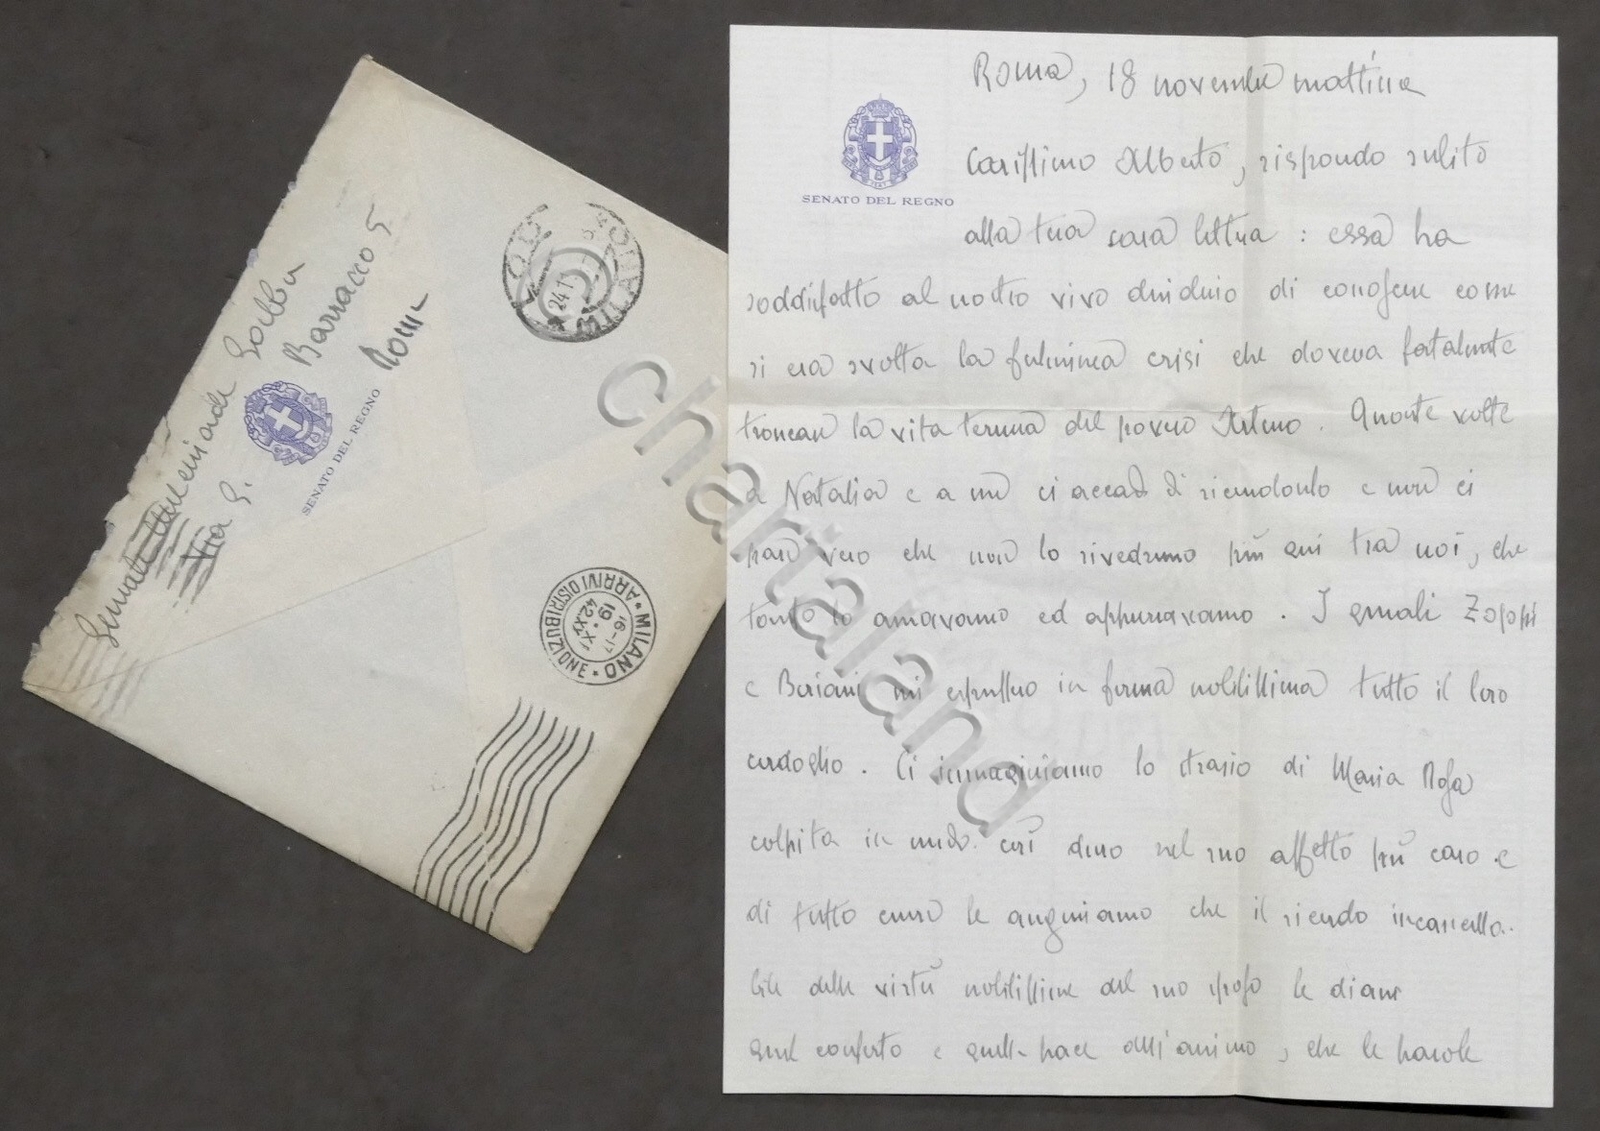 Roma, 18 novembre mattina
SENATO DEL REGNO
Carissimo Alberto, rispondo subito
alla tua cara lettera : essa ha
soddisfatto al nostro vivo desiderio di conoscere come
si era svolta la fulminea crisi che doveva fatalmente
troncare la vita terrena del povero Arturo. Quante volte
a Natalia e a me ci accade di ricordarlo e non ci
pare vero che non lo rivedremo più qui tra noi, che
tanto lo amavamo ed apprezzavamo. I quali Zoppi
e Boriani mi espressero in forma nobilissima tutto il loro
cordoglio. Ci immaginiamo lo strazio di Maria Rosa
colpita in modo così duro nel suo affetto più caro e
di tutto cuore le auguriamo che il ricordo incancella-
bile delle virtù nobilissime del suo sposo le diano
quel conforto e quella pace dell'animo, che le parole
Senatore
Barracco 5
Via G.
Roma
SENATO DEL REGNO
MILANO
24.11
MILANO * ARRIVI DISTRIBUZIONE *
16-17
19.XI
42XXI
chartaland